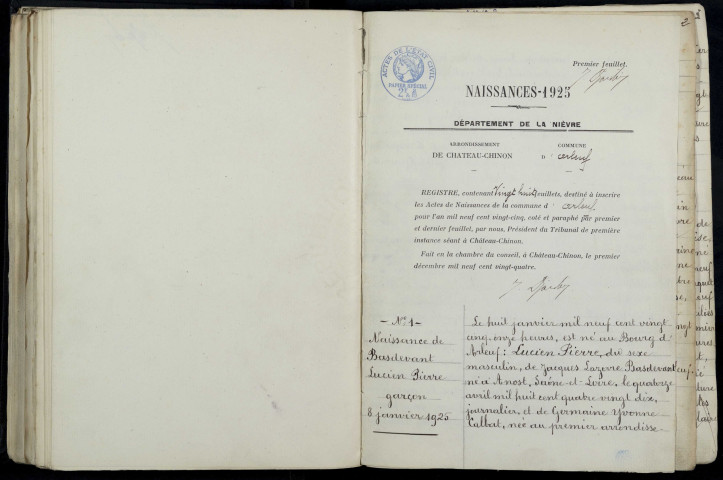 2
Premier feuillet.
ACTES DE L'ETAT CIVIL
PAPIER SPECIAL
NAISSANCES-1925
DÉPARTEMENT DE LA NIÈVRE
ARRONDISSEMENT
DE CHATEAU-CHINON
COMMUNE
D'Arleuf
REGISTRE, contenant Vingt huit feuillets, destiné à inscrire
les Actes de Naissances de la commune d'Arleuf
pour l'an mil neuf cent vingt-cinq, coté et paraphé par premier
et dernier feuillet, par nous, Président du Tribunal de première
instance séant à Château-Chinon.
Fait en la chambre du conseil, à Château-Chinon, le premier
décembre mil neuf cent vingt-quatre.
- N° 1 -
Naissance de
Basdevant
Lucien Pierre
garçon
8 janvier 1925
Le huit janvier mil neuf cent vingt
cinq, onze heures, est né au Bourg d'
Arleuf : Lucien Pierre, du sexe
masculin, de Jacques Lazare Basdevant
né à Anost, Saône-et-Loire, le quatorze
avril mil huit cent quatre vingt dix,
journalier, et de Germaine Yvonne
née au premier arrondisse